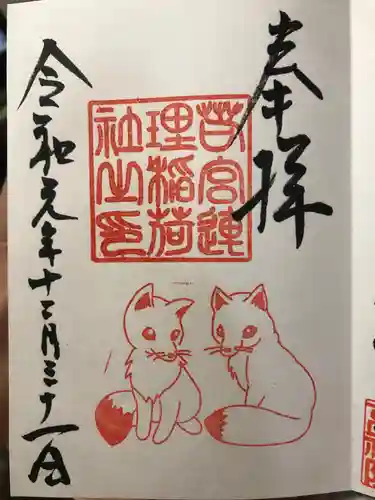 奉拝
苗宮連
理稲荷
社之印
令和元年十二月三十一日